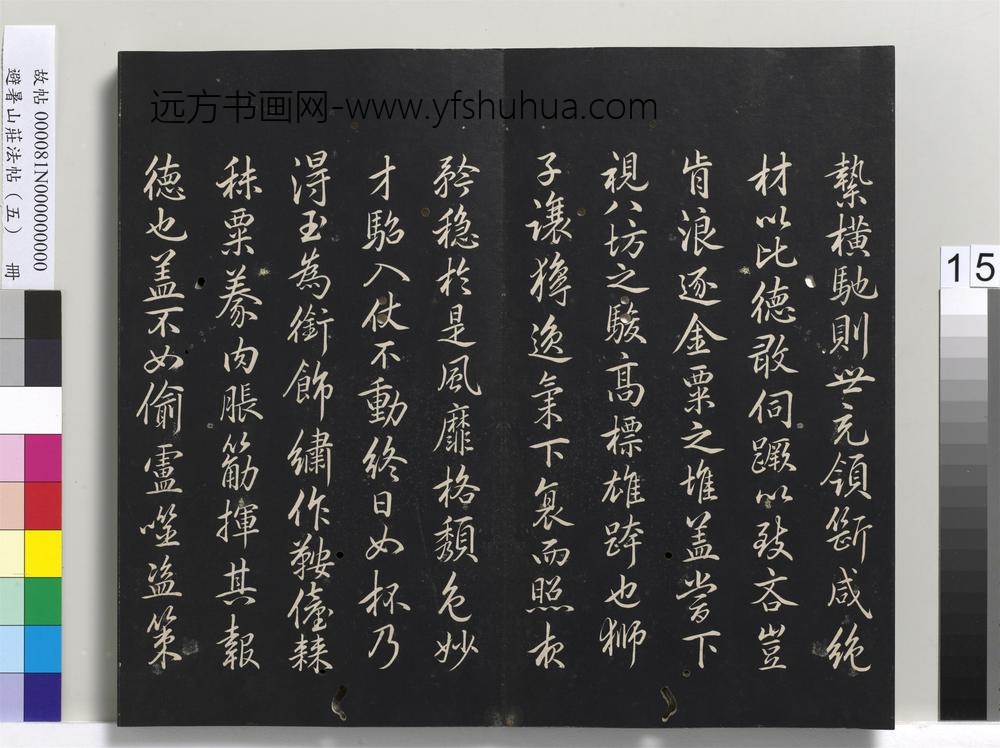 远方书画网-www.yfshuhua.com
縶横馳則世充領斷咸絶
材以比德敢伺蹶以致吝豈
肯浪逐金粟之堆盖當下
視八坊之駿高標雄跨也獅
子讓獰逸氣下衰而照夜
矜穏於是風靡格頽色妙
才駘入仗不動終日如杯乃
淂玉為銜飾繡作鞍儓棘
秣粟豢肉脹筋揮其報
徳也盖不如偷盧噬盜策
故帖 000081N000000000
避暑山莊法帖（五） 冊
15